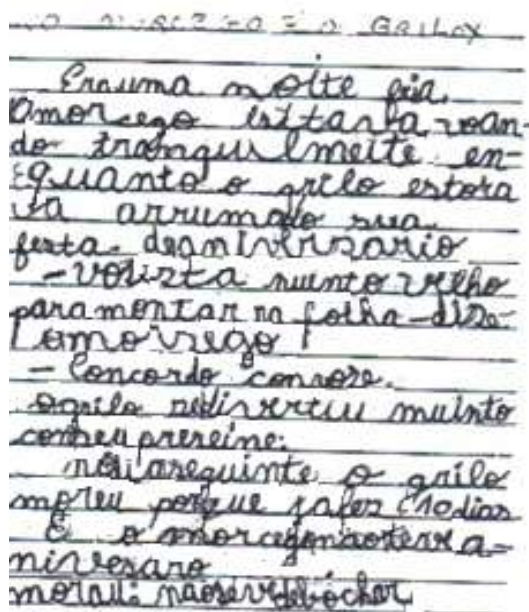 O MORCEGO E O GRILOX
Erauma noite fria.
Omorcego esttava voan-
do tramquilmeite en-
quanto o grilo estora
va arrumado sua
festa deaniversario
- Voüsta muinto velho
paramontar na folha - dise
omorsego
- Concordo convose.
ogrilo sediverteu muinto
comseu
nodiaseguinte o grilo
moreu porque jafes (10dias
E o morcegonaoteve a-
niversaro
moral: naosevedebochar